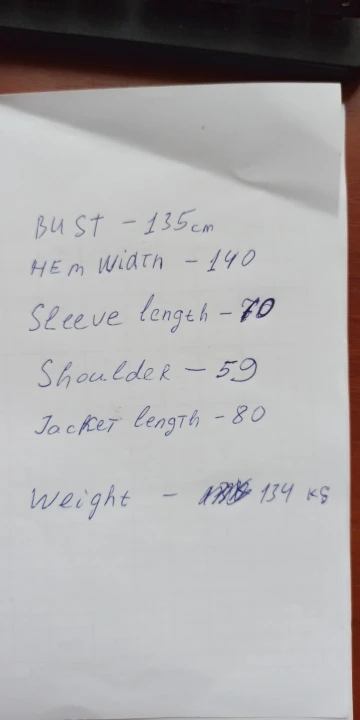 BUST - 135cm
HEM Width - 140
Sleeve length - 70
Shoulder - 59
Jacket length - 80
Weight - 134 kg